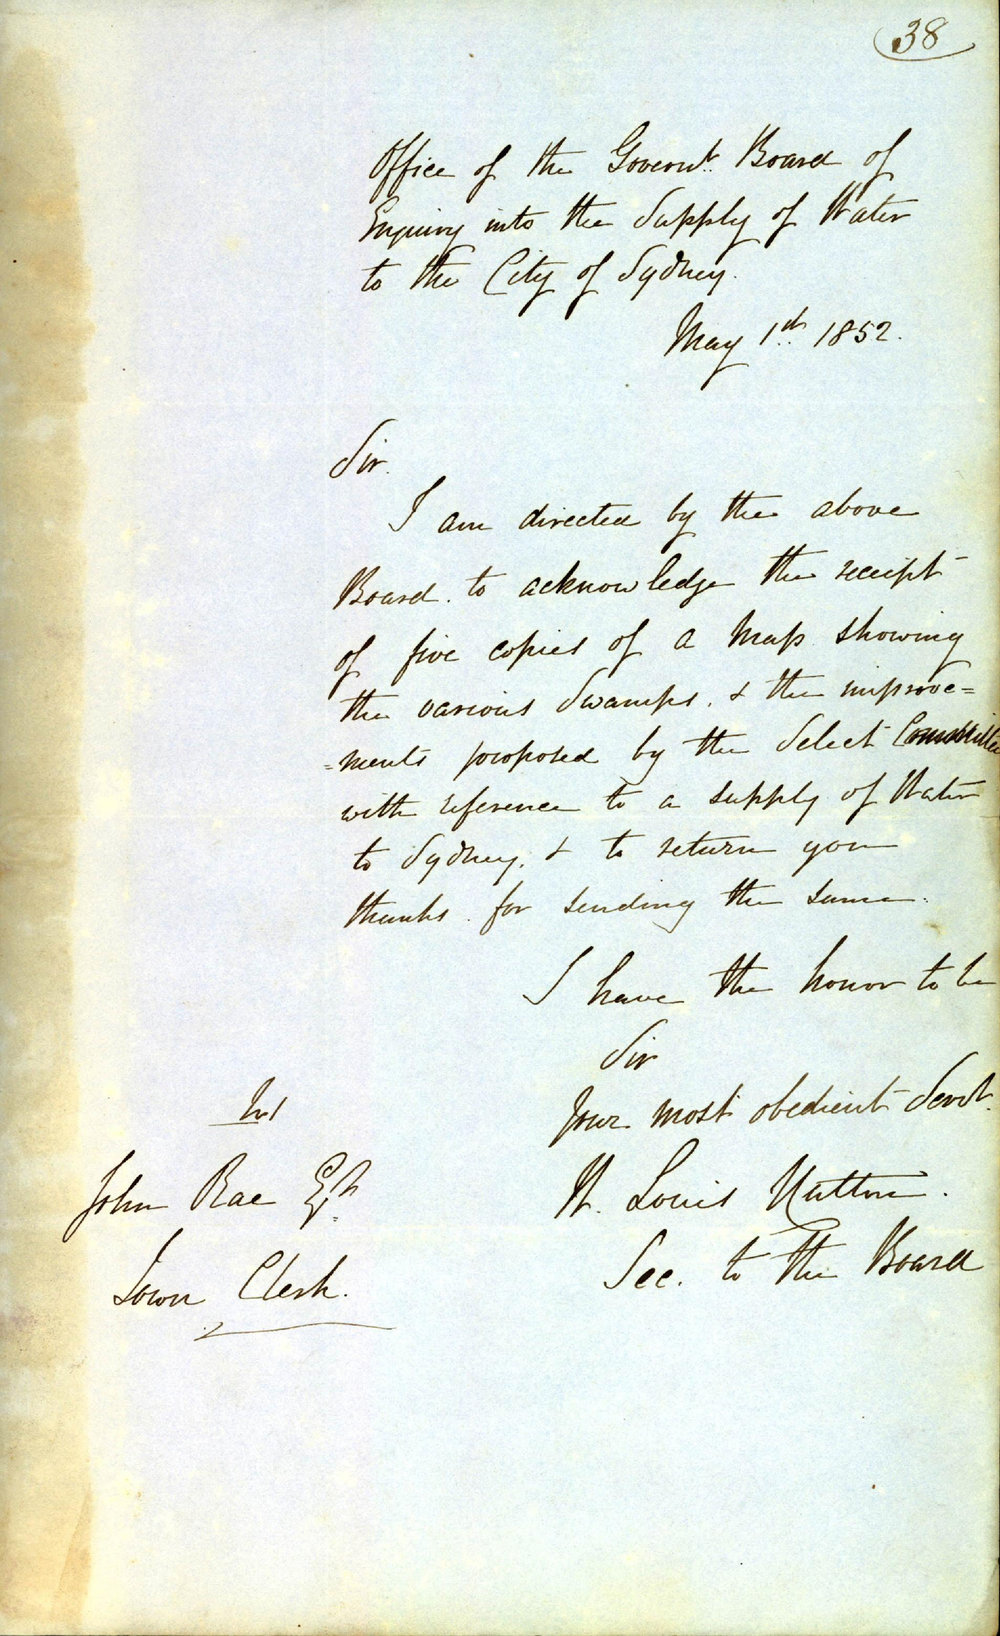 38
Office of the Governt. Board of
Enquiry into the Supply of Water
to the City of Sydney.
May 1st. 1852.
Sir.
I am directed by the above
Board. to acknowledge the receipt
of five copies of a Map showing
the various Swamps. & the improve=
=ments proposed by the Select Committee
with reference to a supply of Water
to Sydney. & to return you
thanks. for sending the same.
I have the honor to be
Sir
Your most obedient Servt.
W. Louis Hutton.
Sec. to the Board
John Rae Esqr.
Town Clerk.